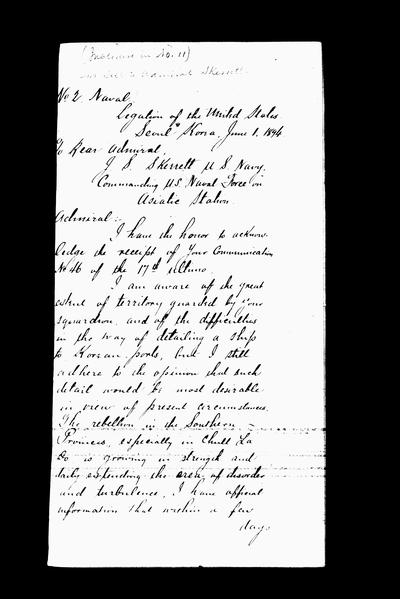 (Inclosure in No. 11)
to Admiral Skerrett
No 2 Naval
Legation of the United States
Seoul Korea, June 1, 1894
To Rear Admiral,
J. S. Skerrett U S Navy,
Commanding U.S. Naval Force on
Asiatic Station
Admiral:-
I have the honor to acknow-
ledge the receipt of your communication
No 46 of the 17th ultimo.
I am aware of the great
extent of territory guarded by your
squadron, and of the difficulties
in the way of detailing a ship
to Korean ports, but I still
adhere to the opinion that such
detail would be most desirable
in view of present circumstances.
The rebellion in the Southern
Provinces, especially in Chulla
Do is growing in strength and
daily extending the area of disorder
and turbulence. I have official
information that within a few
days